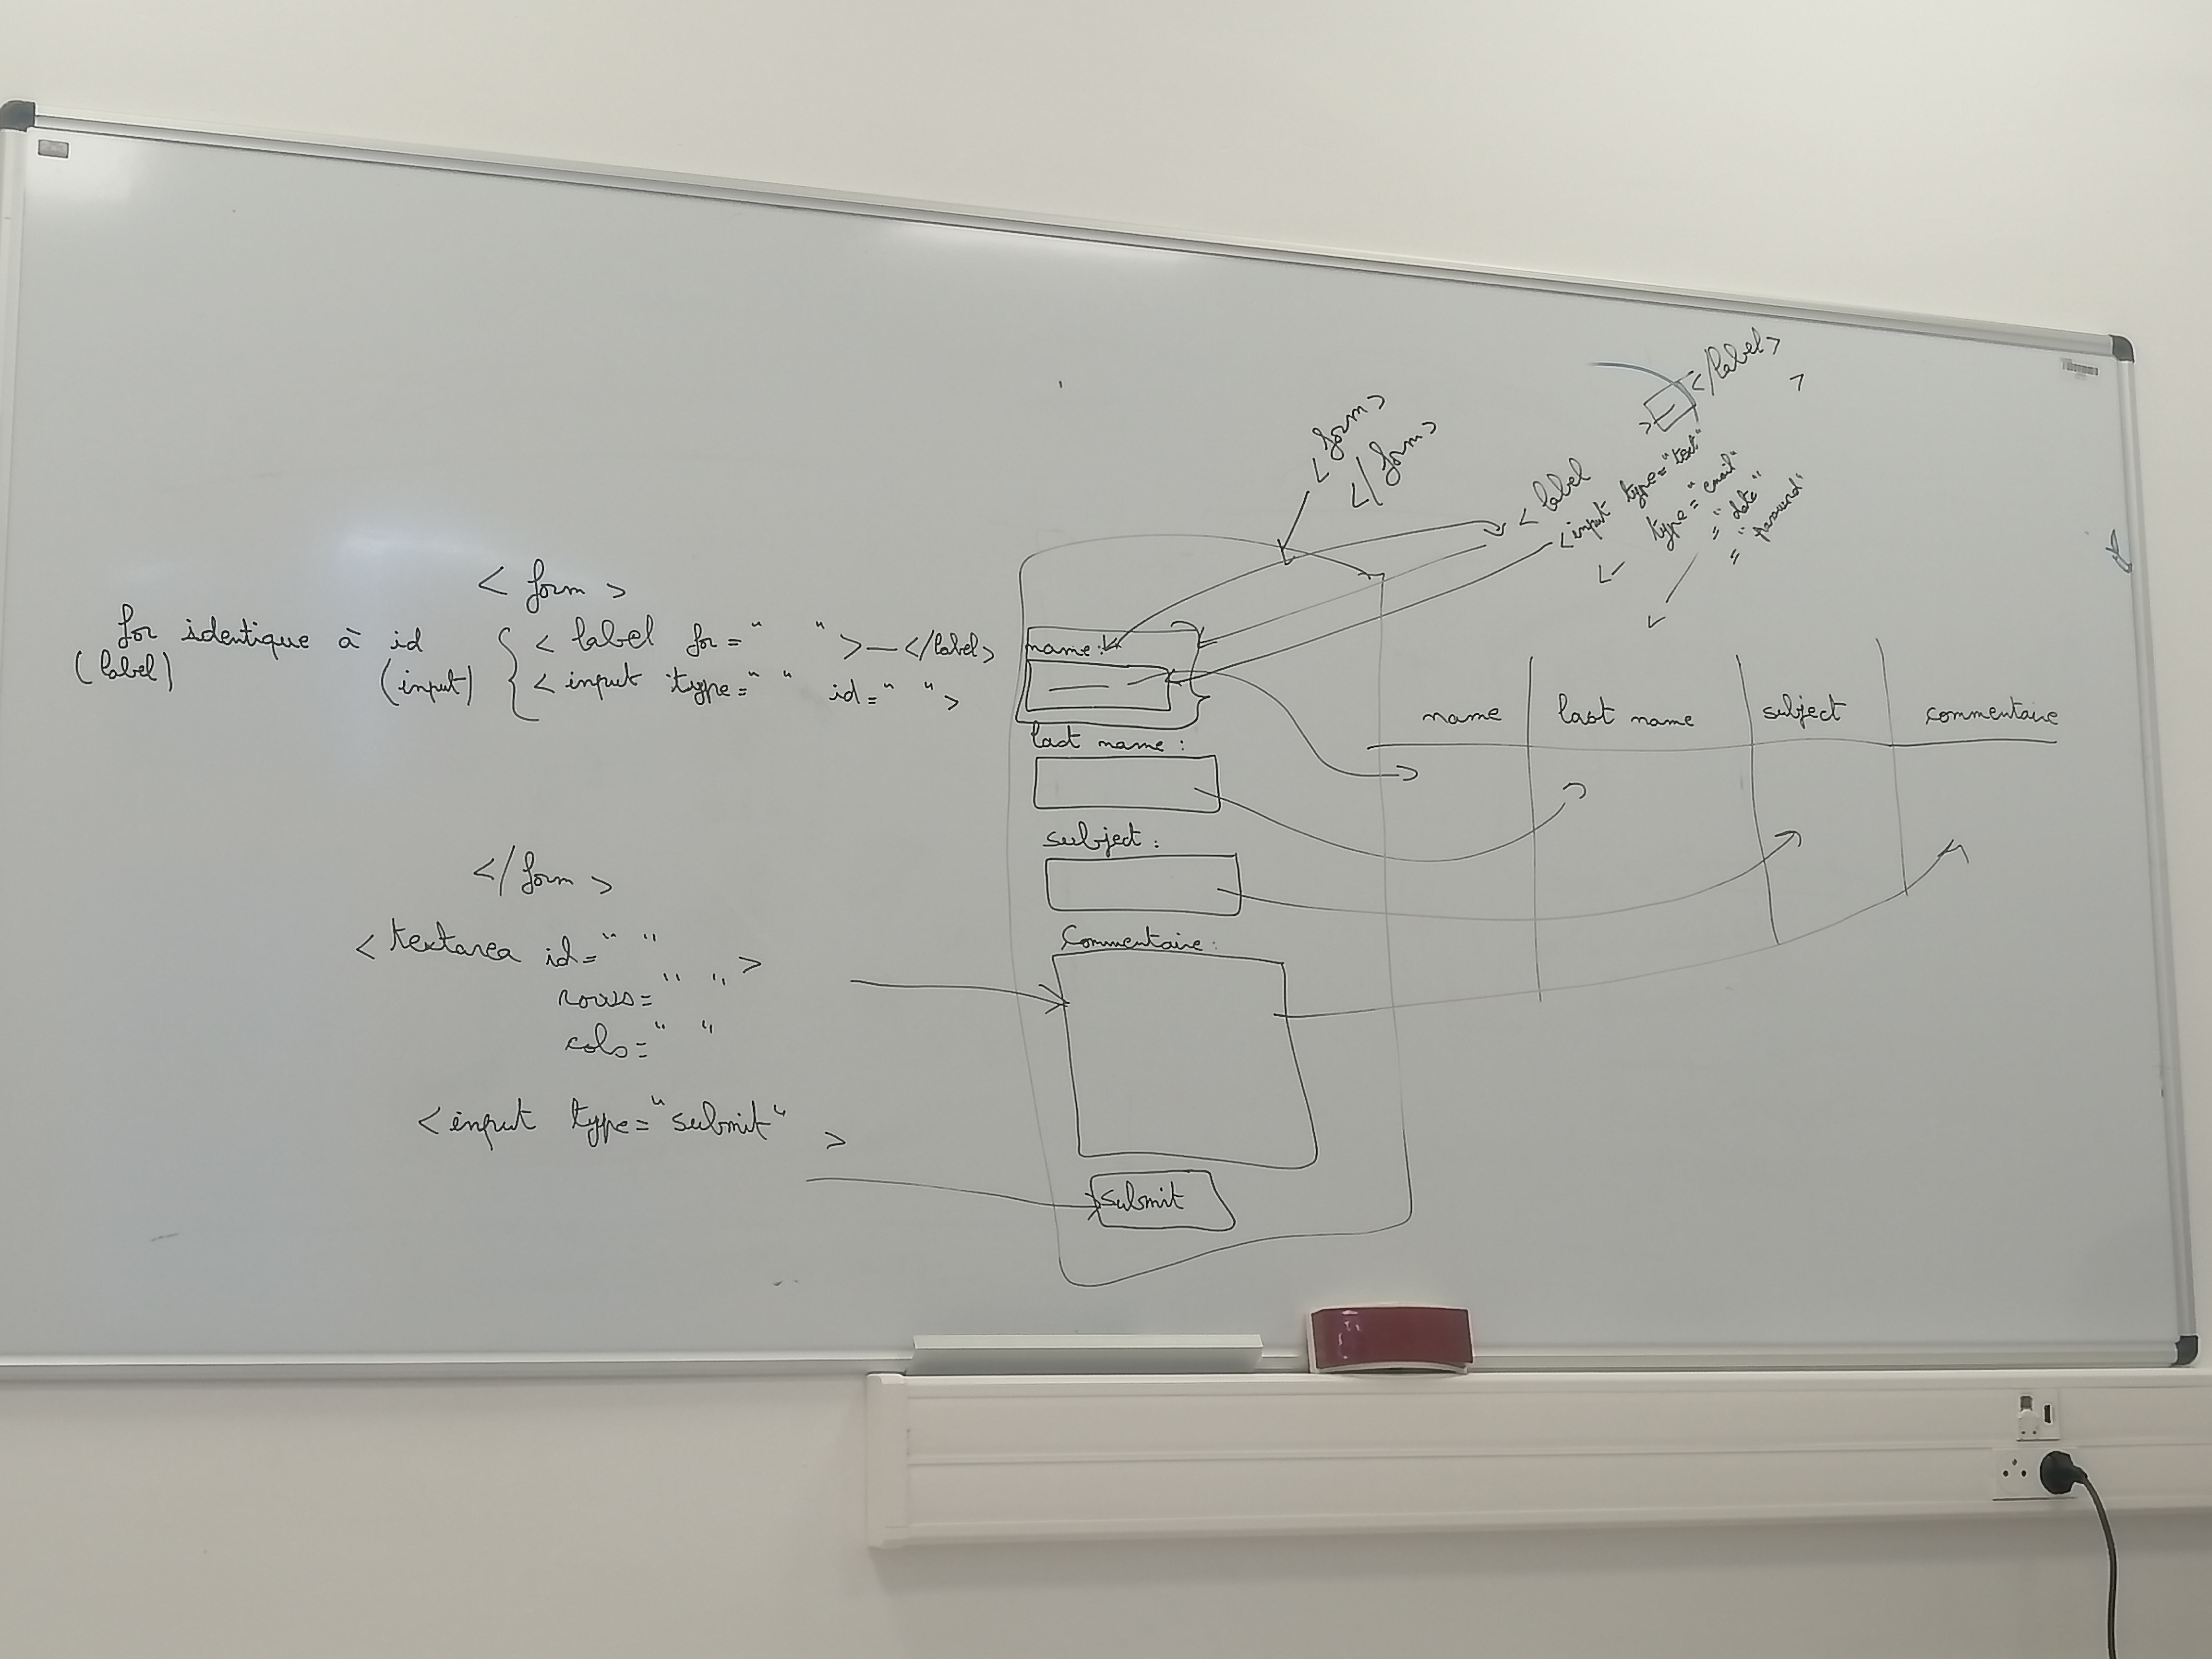 < form >
for identique à id
(label) (input)
< label for=" " > — </label>
< input type=" " id=" " >
</ form >
< textarea id=" " >
rows=" "
cols=" "
< input type="submit" >
< form >
</ form >
name :
last name :
subject :
Commentaire :
submit
< label > </label>
<input type="text" >
type="email"
="date"
="password"
name last name subject commentaire